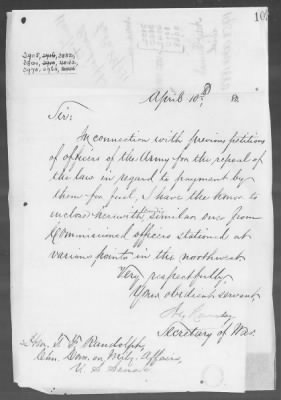 April 10th 80.
Sir:
In connection with previous petitions
of officers of the Army for the repeal of
the law in regard to payment by
them for fuel, I have the honor to
inclose herewith similar ones from
Commissioned officers stationed at
various points in the northwest
Very respectfully,
Your obedient servant
Ramsey
Secretary of War.
Hon. T. F. Randolph,
Chn. Com. on Mily. Affairs,
U. S. Senate